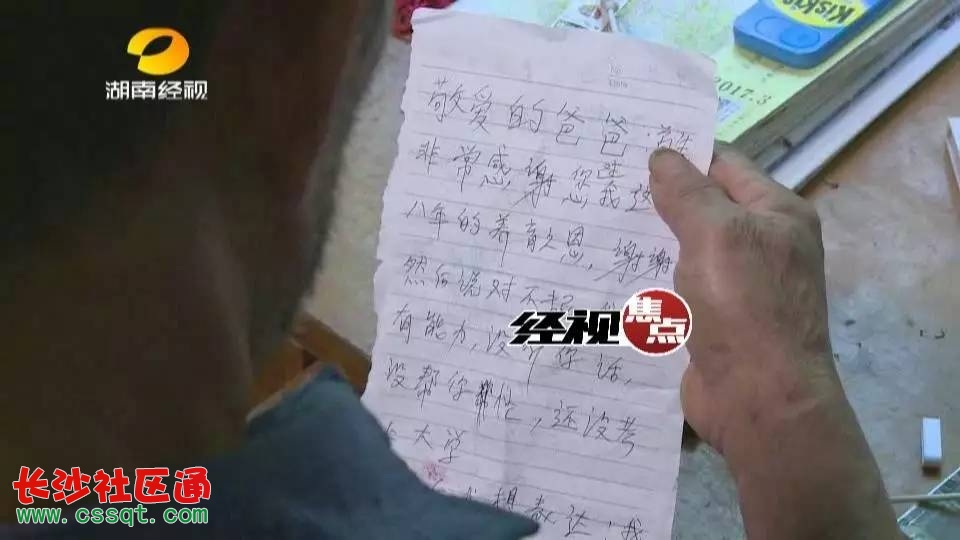 湖南经视
Kiskis
2017.3
敬爱的爸爸:首先
非常感谢您这我这
八年的养育之恩,谢谢
然后说对不起,
有能力,没听你话,
没帮你忙,还没考
大学
想表达:我
经视焦点
长沙社区通
www.cssqt.com